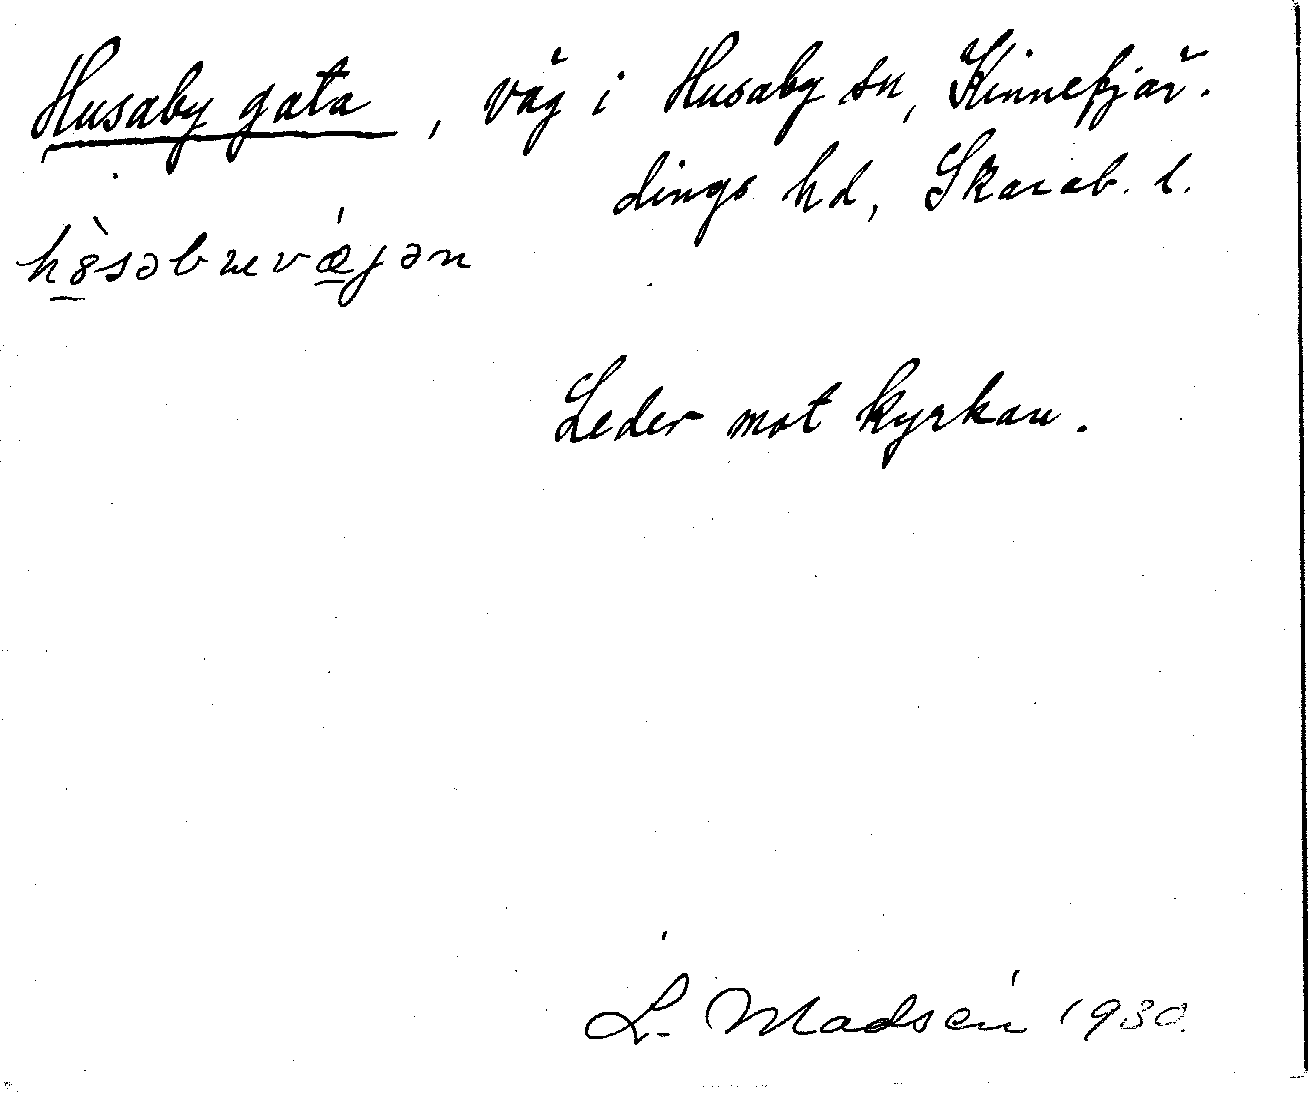 Husaby gata, väg i Husaby sn, Kinnefjär-
dings hd, Skarab. l.
Leder mot kyrkan.
L. Madsén 1930.